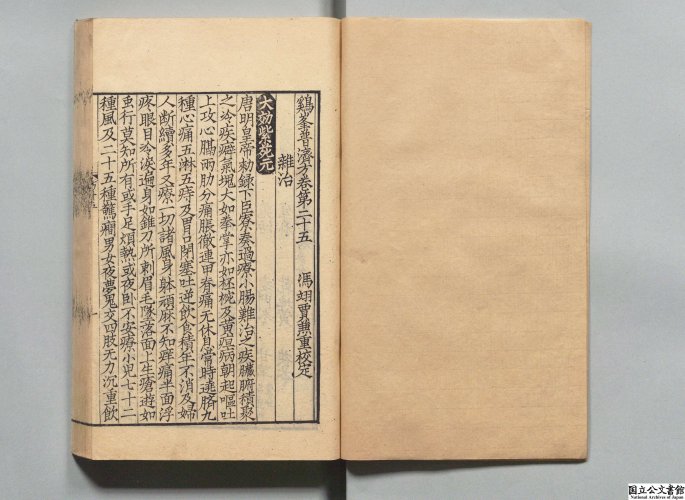 鷄峯普濟方卷第二十五
馮翊賈兼重校定
雜治
大効紫菀元
唐明皇帝勅錄下臣寮奏過療小腸難治之疾臟腑積聚
之冷疾癖氣塊大如拳掌亦如杯椀及黃疸病朝起嘔吐
上攻心腸兩肋分痛脹徹連甲脊痛无休息常時遶臍九
種心痛五淋五痔及胃口閉塞吐逆飲食積年不消及婦
人斷續多年又療一切諸風身躰頑麻不知痒痛半面浮
疼眼目冷淚遍身如錐刀所刺眉毛墜落面上生瘡遊如
虫行莫知所有或手足煩熱或夜卧不安療小兒七十二
種風及二十五種驚癇男女夜夢鬼交四肢无力沉重飲
国立公文書館
National Archives of Japan